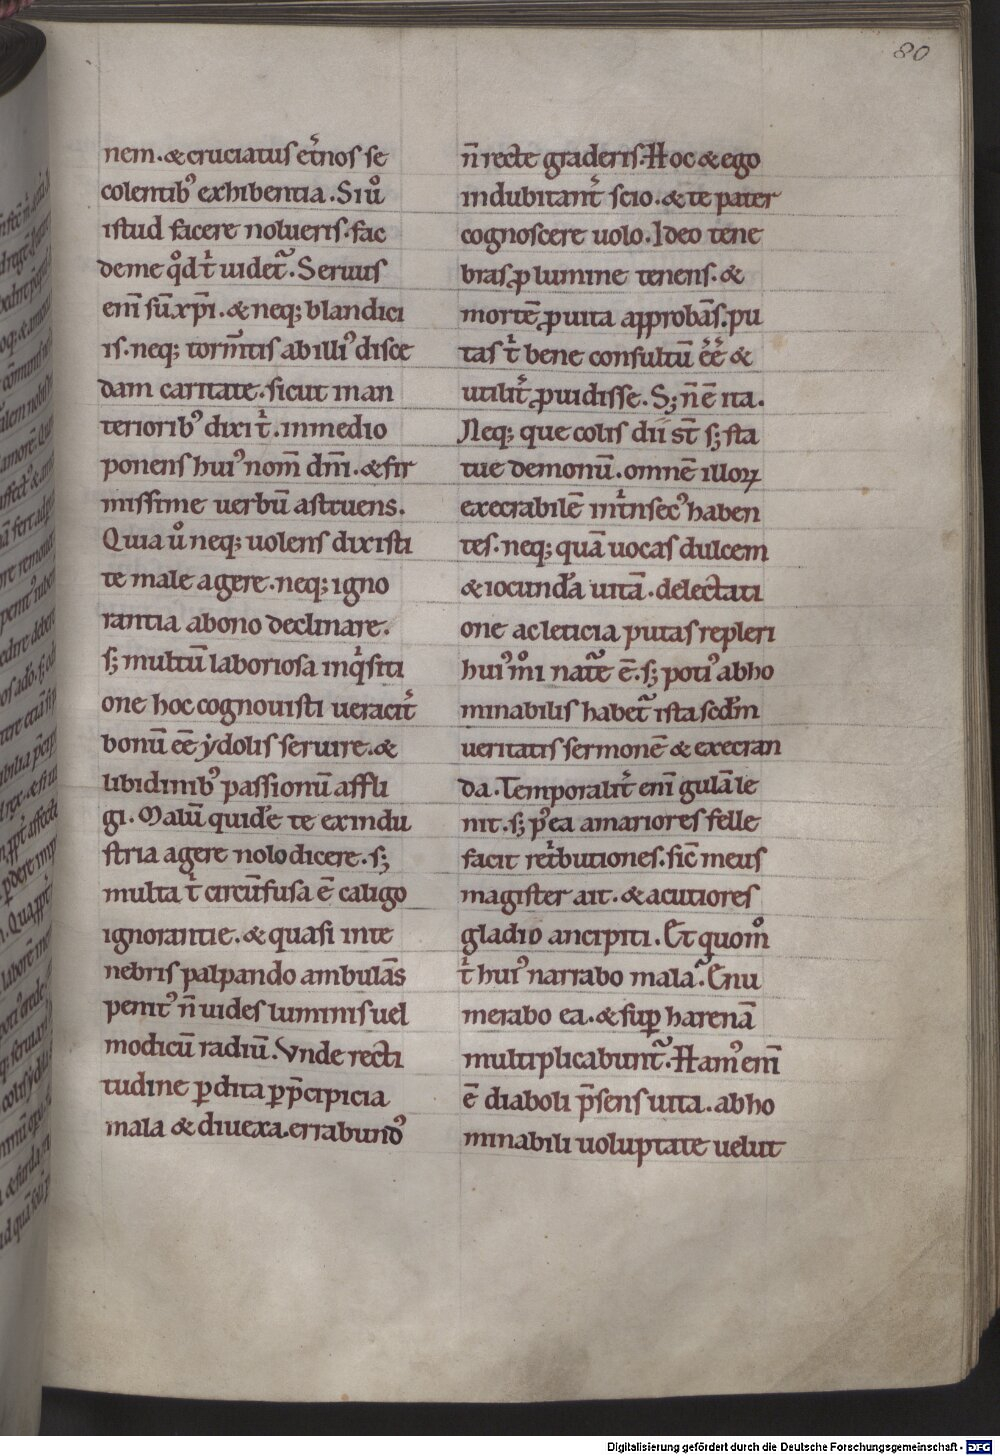 80
nem. & cruciatus et̄nos se
colentib᷒ exhibentia. Si u͛o
istud facere nolueris. fac
deme qͦd tͥ uidet᷑. Seruus
eni̅ su̅ xp̅i. & neq; blandici
is. neq; torm̅tis ab illi᷒ disce
dam caritate. sicut in an
teriorib᷒ dixi tͥ. in medio
ponens hui᷒ nom̅ dn̅i. & fir
missime uerbu̅ astruens.
Quia uͦ neq; uolens dixisti
te male agere. neq; igno
rantia a bono declinare.
s; multu̅ laboriosa inqͥsiti
one hoc cognouisti ueracit͛
bonu̅ ee̅ ẏdolis seruire. &
libidinib᷒ passionu̅ affli
gi. Malu̅ quide̅ te ex indu
stria agere nolo dicere. s;
multa tͥ circu̅fusa e̅ caligo
ignorantie. & quasi in te
nebris palpando ambula̅s
penit᷒ n̅ uides luminis uel
modicu̅ radiu̅. Vnde recti
tudine ꝑdita ꝑ p̅cipicia
mala & diuexa. errabund᷒
n̅ recte graderis. Hoc & ego
indubitant͛ scio. & te pater
cognoscere uolo. Ideo tene
bras ꝓ lumine tenens. &
morte̅ ꝓ uita approba̅s. pu
tas tͥ bene consultu̅ e͛e͛ &
utilit͛ ꝓuidisse. S; n̅ e̅ ita.
Neq; que colis dii st̅ s; sta
tue demonu̅. omne̅ illoꝝ
execrabile̅ intͥnsec᷒ haben
tes. neq; qua̅ uocas dulcem
& iocunda̅ uita̅. delectati
one ac leticia putas repleri
hui᷒ mͦi nat᷑e e̅. s; poti᷒ abho
minabilis habet᷑ ista scd̅m
ueritatis sermone̅ & execran
da. Temporalit͛ eni̅ gula̅ le
nit. s; p᷒ea amariores felle
facit ret̅butiones. sic̅ meus
magister ait. & acutiores
gladio ancipiti. Et quomͦ
tͥ hui᷒ narrabo mala. Enu
merabo ea. & suꝑ harena̅
multiplicabunt᷑. Ham᷒ eni̅
e̅ diaboli p̅sens uita. abho
minabili uoluptate uelut
Digitalisierung gefördert durch die Deutsche Forschungsgemeinschaft - DFG